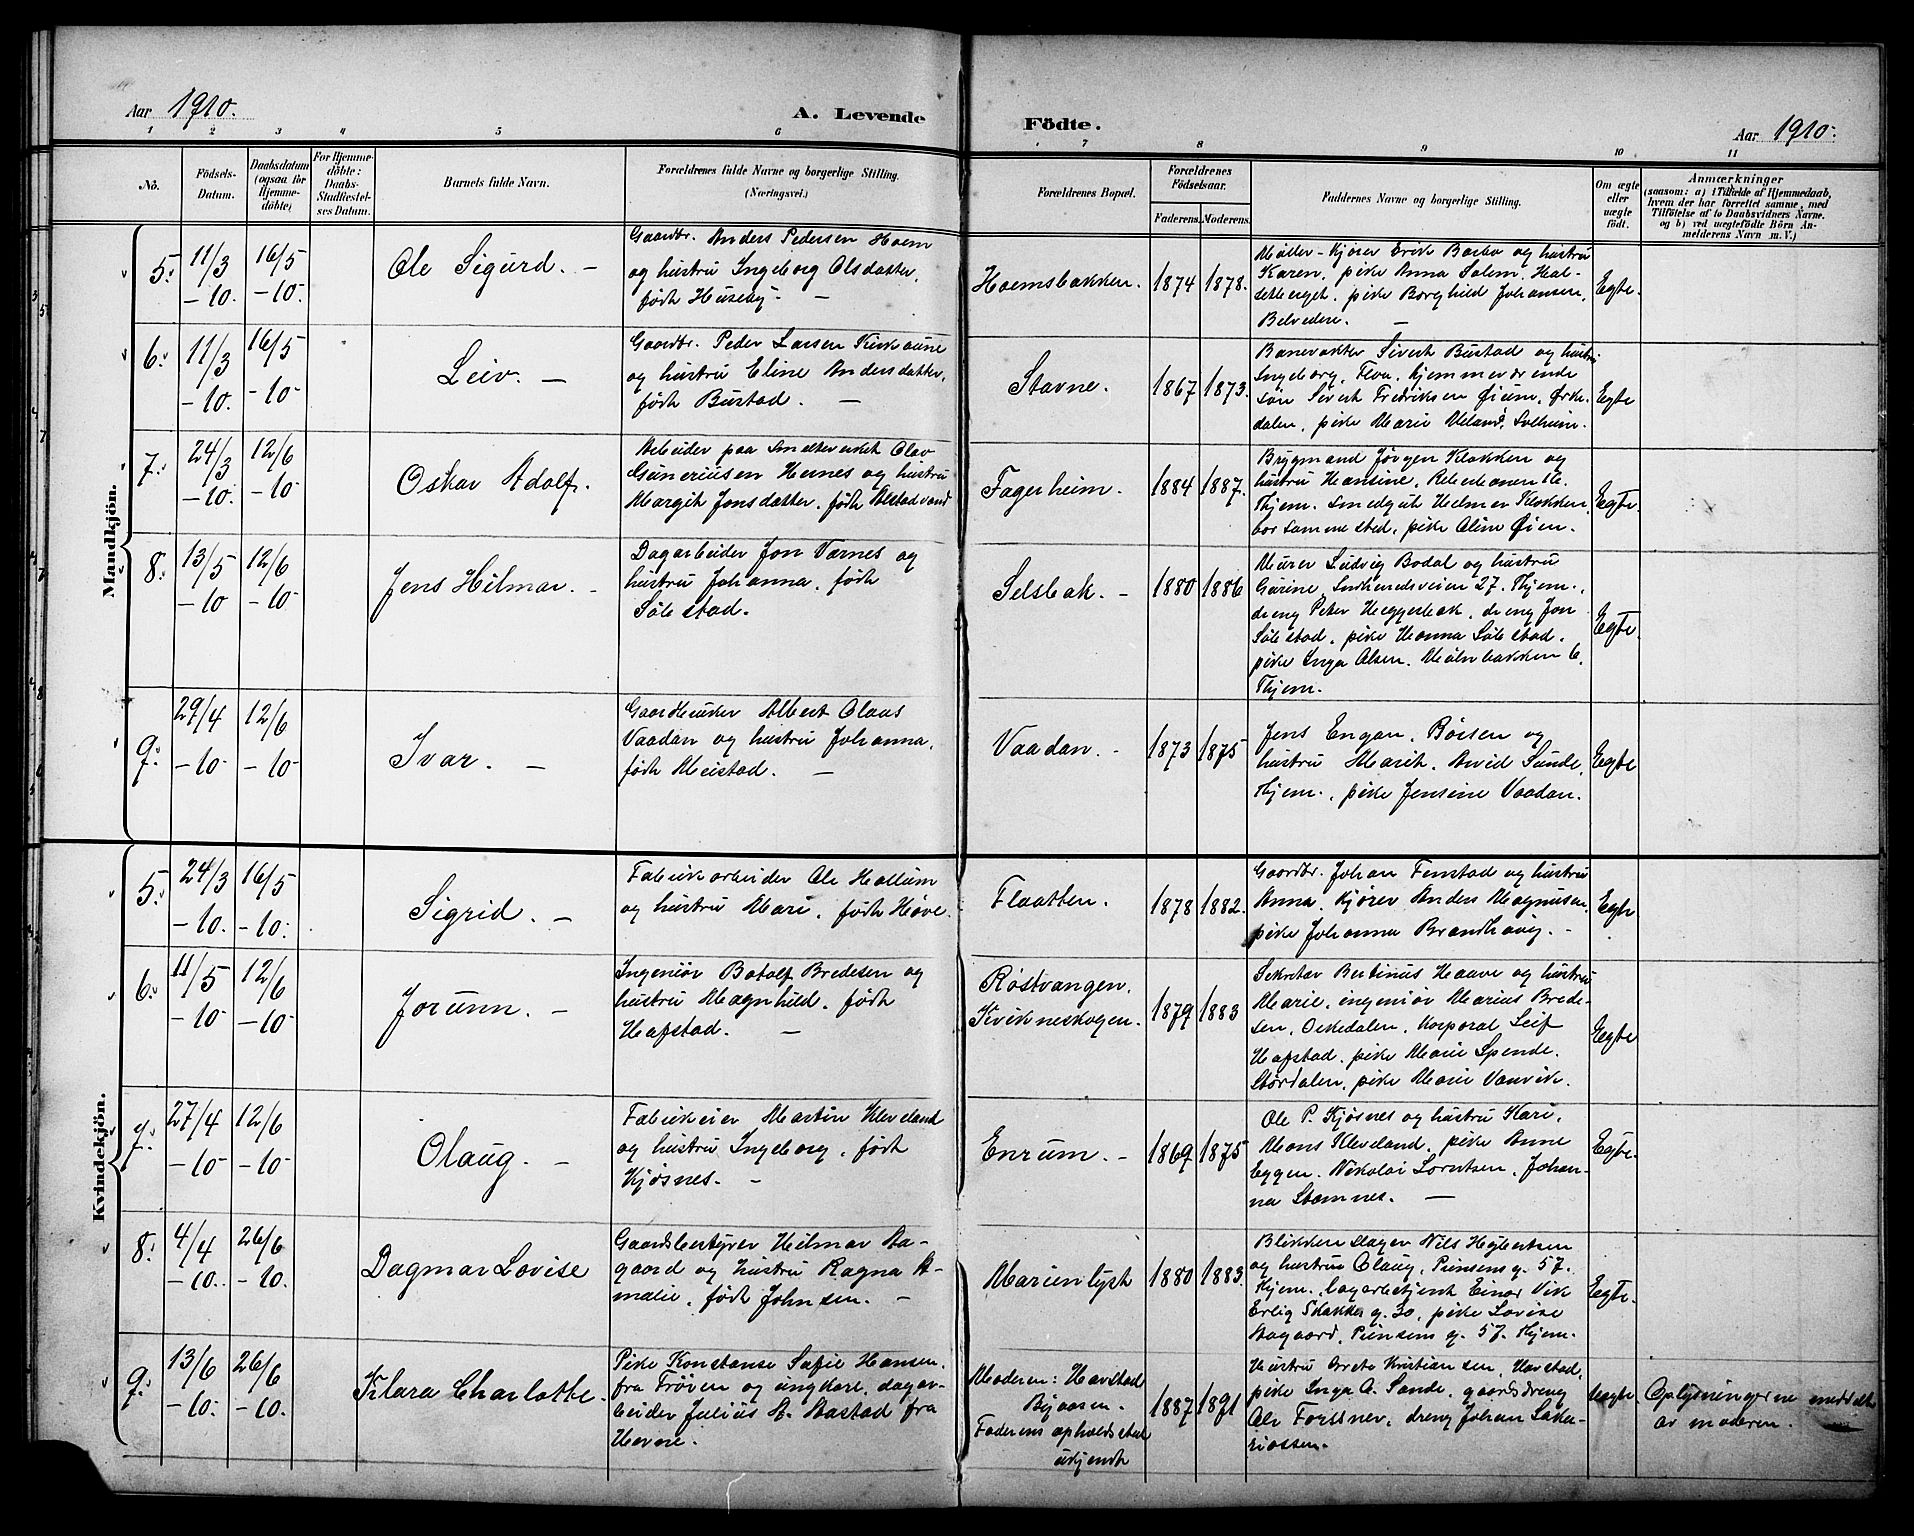 Aar 1910.
A. Levende Födte.
Aar 1910.
1 2 3 4 5 6 7 8 9 10 11
No.
Födsels-Datum.
Daabsdatum (ogsaa for Hjemmedöbte)
For Hjemmedöbte: Daabs-Stadfæstelses Datum.
Barnets fulde Navn.
Forældrenes fulde Navne og borgerlige Stilling. (Næringsvei.)
Forældrenes Bopæl.
Forældrenes Födselsaar.
Faderens. Moderens.
Faddernes Navne og borgerlige Stilling.
Om ægte eller uægte födt.
Anmærkninger
(saasom: a) i Tilfælde af Hjemmedaab, hvem der har forrettet samme, med Tilföielse af to Daabsvidners Navne. og b) ved uægtefödte Börn Anmelderens Navn m. V.)
Mandkjön.
5. 11/3 -10. 16/5 -10.
Ole Sigurd. -
Gaardbr. Anders Pedersen Hoem
og hustru Ingeborg Olsdatter,
født Huseby. -
Hoemsbakken. 1874 1878.
Møller-Kjører Erik Barbo og hustru
Karen, pike Anna Salem, Hal-
setberget, pike Borghild Johansen,
Belvedere. -
Egte.
6. 11/3 -10. 16/5 -10.
Leiv. -
Gaardbr. Peder Larsen Kirkaune
og hustru Eline Andersdatter,
født Bustad. -
Stavne. 1867 1873.
Banevokter Sivert Bustad og hustru
Ingeborg, Flaa, hjemmeværende
søn Sivert Fredriksen Øium, Ørke-
dalen, pike Marie Meland, Solheim.
Egte
7. 24/3 -10. 12/6 -10.
Oskar Adolf.
Arbeider paa Smelteverket Olav
Guneriussen Hernes og hustru
Margit Jonsdatter, født Alstadvand
Fagerheim. 1884 1887.
Brygmand Jørgen Klokken og
hustru Hansine,
Thjem. Smedgut Helmer Klokken,
bor sammested, pike Oline Øien.
Egte.
8. 13/5 -10 12/6 -10.
Jens Hilmar. -
Dagarbeider Jon Værnes og
hustru Johanna, født
Sølestad.
Selsbak. - 1880 1886
Murer Ludvig Bodal og hustru
Gurine, 27. Thjem.,
dreng Peter Heggerbak, dreng Jon
Sølestad, pike Hanna Sølestad,
pike Inga Olsen. Møllebakken 6,
Thjem.
Egte.
9. 29/4 -10. 12/6 -10.
Ivar. -
Gaardbruker Albert Olaus
Vaadan og hustru Johanna,
født Meistad. -
Vaadan. - 1873 1875
Jens Engan, Børsen og
hustru Marit. Arvid Sunde,
Thjem., pike Jensine Vaadan.
Egte
Kvindekjön.
5. 24/3 -10. 16/5 -10.
Sigrid. -
Fabrikarbeider Ole Hallum
og hustru Mari, født Høve.
Flaatten. 1878 1882.
Gaardbr. Johan Fenstad og hustru
Anna. Kjører Anders Magnusen,
pike Johanna Brandhaug. -
Egte
6. 11/5 -10- 12/6 -10-
Jorunn. -
Ingeniør Botolf Bredesen og
hustru Magnhild, født
Hafstad. -
Røstvangen,
Kvikneskogen. 1879 1883
Sekretær Bertinus Haave og hustru
Marie, ingeniør Marius Brede-
sen, Orkedalen, Korporal Leif
Hafstad, pike Marie Spende,
Størdalen, pike Marie Vanvik.
Egte
7. 27/4 -10- 12/6 -10-
Olaug. -
Fabrikeier Martin Kleveland
og hustru Ingeborg, født
Kjøsnes. -
Enrum. - 1869 1875
Ole P. Kjøsnes og hustru Kari,
Mons Kleveland, pike Anne
Eggen. Nikolai Lorntsen, Johan-
na Stamnes. -
Egte.
8. 4/4 -10. 26/6 -10.
Dagmar Lovise
Gaardsbestyrer Hilmar Aa-
gaard og hustru Ragna A-
malie, født Johnsen. -
Marienlyst 1880 1883.
Blikkenslager Nils Hybertsen
og hustru Olaug, Prinsens g. 57.
Thjem., lagerbetjent Einar Vik
Erling Skakkes g. 30, pike Lovise
Aagaard, Prinsens g. 57. Thjem.
Egte.
9. 13/6 -10. 26/6 -10.
Klara Charlotte.
Pike Konstanse Sofie Hansen,
fra Frøien og ungkarl, dagar-
beider Julius A. Aastad fra
Hevne.
Moderen: Havstad
Byaasen.
Faderens opholdssted
ukjendt
1887 1891
Hustru Berte Kristiansen, Havstad,
pike Inga O. Sande, gaardsdreng
Ole Forssner, dreng Johan Saka-
riassen.
Uegte
Oplysningerne meddelt
av moderen.